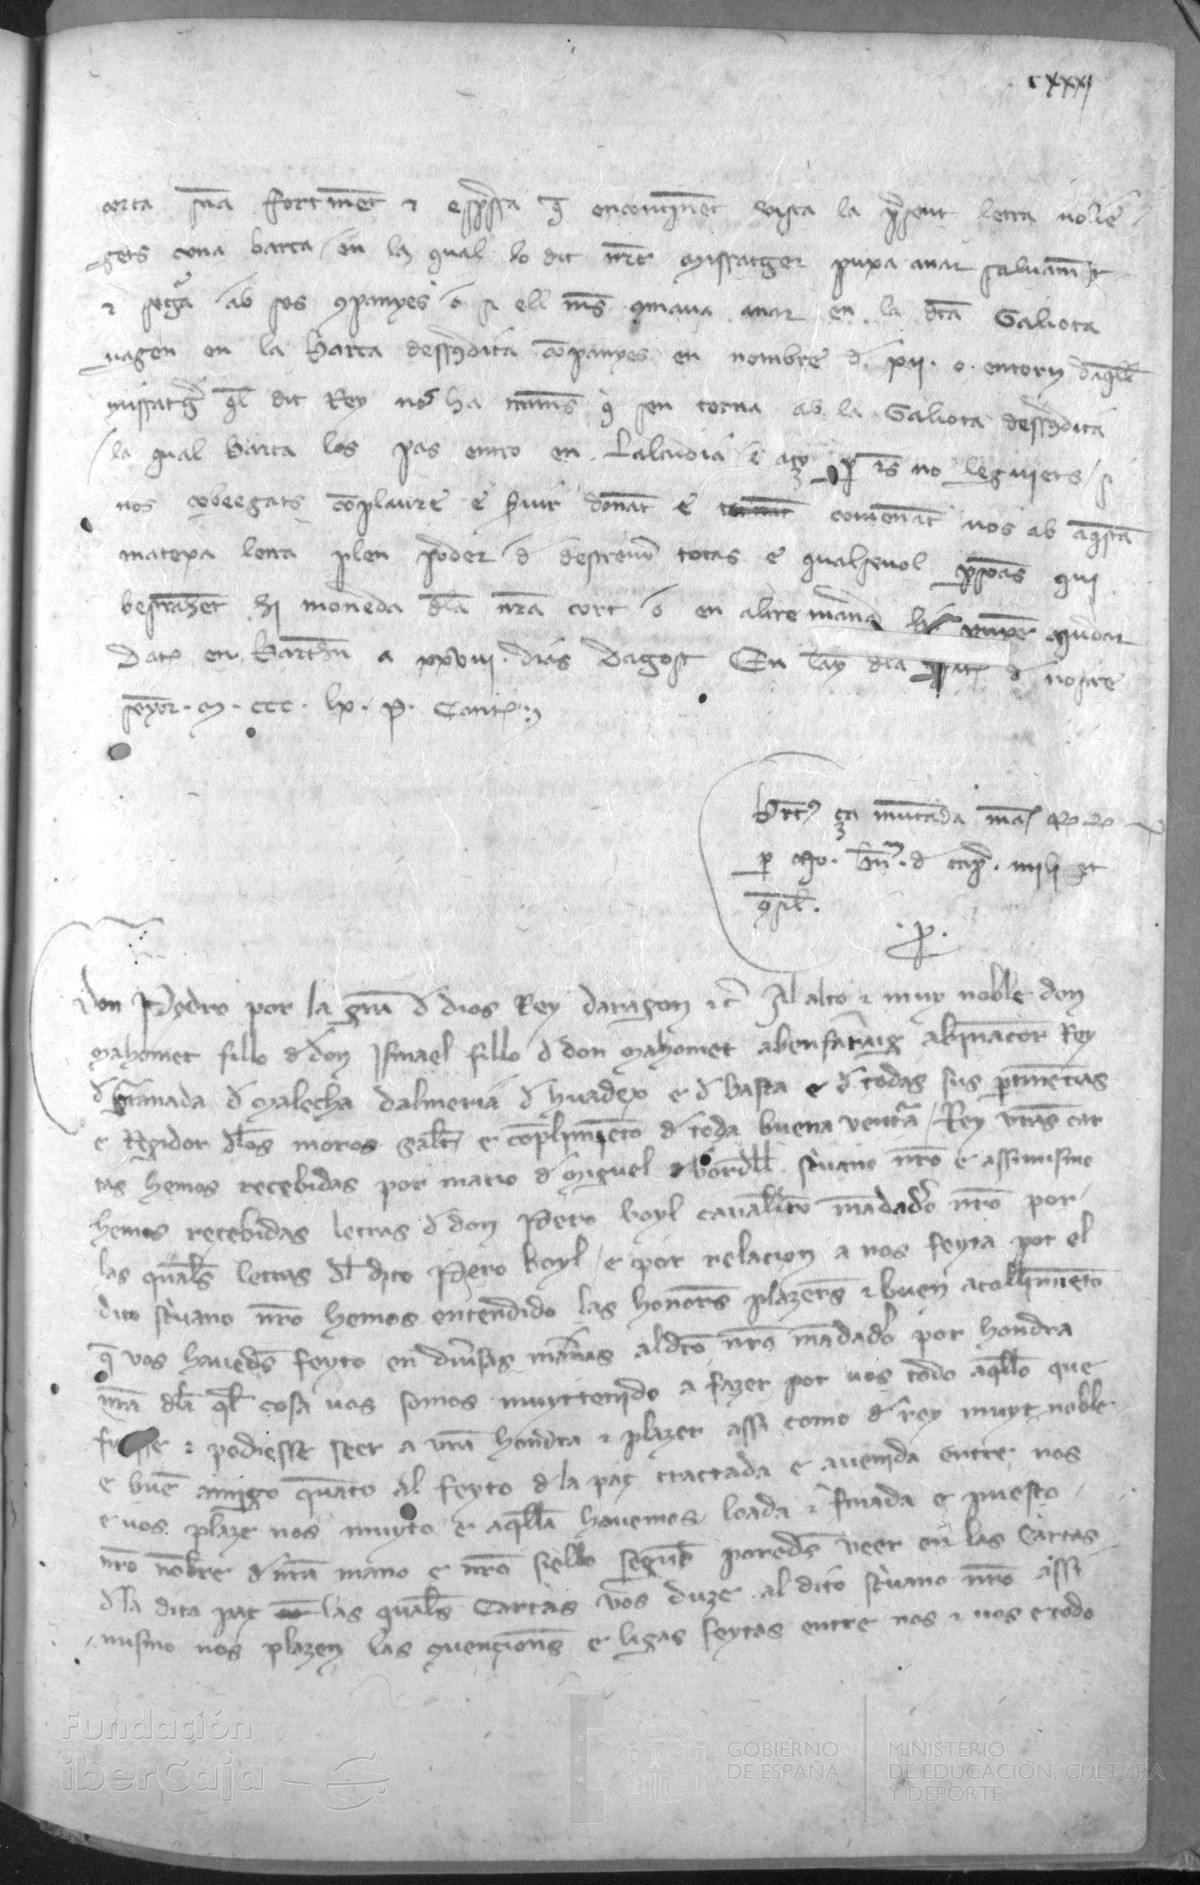 cxxxj
certa sua fortment e espressa que encontinent vista la present letra nolie
gets una barca en la qual lo dit nostre missatger puxa anar salvament
e segura ab ses companyes o si ell mes amava anar en la dita Galiota
vagen en la barca dessusdita companyes en nombre de xii. o. entorn daquell
missatger quel dit Rey nos ha trames que sen torna ab la Galiota dessusdita
la qual barca los pas entro en Lalcudia e aço per res no lexguiets si
nos cobeegats complaure e servir donant e comenant vos ab aquesta
matexa letra plen poder de destreny totas e qualsevol personas qui
bestrahent hi moneda dela nostra cort o en altre manera
Dat en Barchna a xxviii. dias dagost En lany dela nat de nostre
senyor. M. ccc. lx. P. Canc.
per
consil.
.P.
Don Pedro por la gra de dios Rey daragon etc Al alto e muy noble don
Mahomet fillo de don Ismael fillo de don Mahomet abenfaraig abennacer Rey
de Granada de Malecha dalmeria de huadex e de basta e de todas sus pertinencias
e Regidor delos moros salut e complimiento de toda buena ventura Rey vras car
tas hemos recebidas por mano de Miguel de bordell scrivano nro e assimismo
hemos recebidas letras de don Pero boyl cavallero mandadero nro por
las quales letras del dito Pero boyl e por relacion a nos feyta por el
dito scrivano nro hemos entendido las honores plazeres e buen acollimiento
que vos havedes feyto en diversas maneras al dito nro mandadero por hondra
nra dela qual cosa vos somos muyt tenido a fazer por vos todo aquello que
fuesse e podiesse seer a vra hondra e plazer assi como de rey muyt noble
e buen amigo quanto al feyto de la paç tractada e avenida entre nos
e vos plaze nos muyto e aquella havemos loada e firmada e puesto
nro nombre de nra mano e nro siello segunt poredes veer en las Cartas
dela dita paç las quales Cartas vos duze al dito scrivano nro assi
mismo nos plazen las convenciones e ligas feytas entre nos e vos e todo
Fundación
iberCaja
GOBIERNO
DE ESPAÑA
MINISTERIO
DE EDUCACIÓN, CULTURA
Y DEPORTE